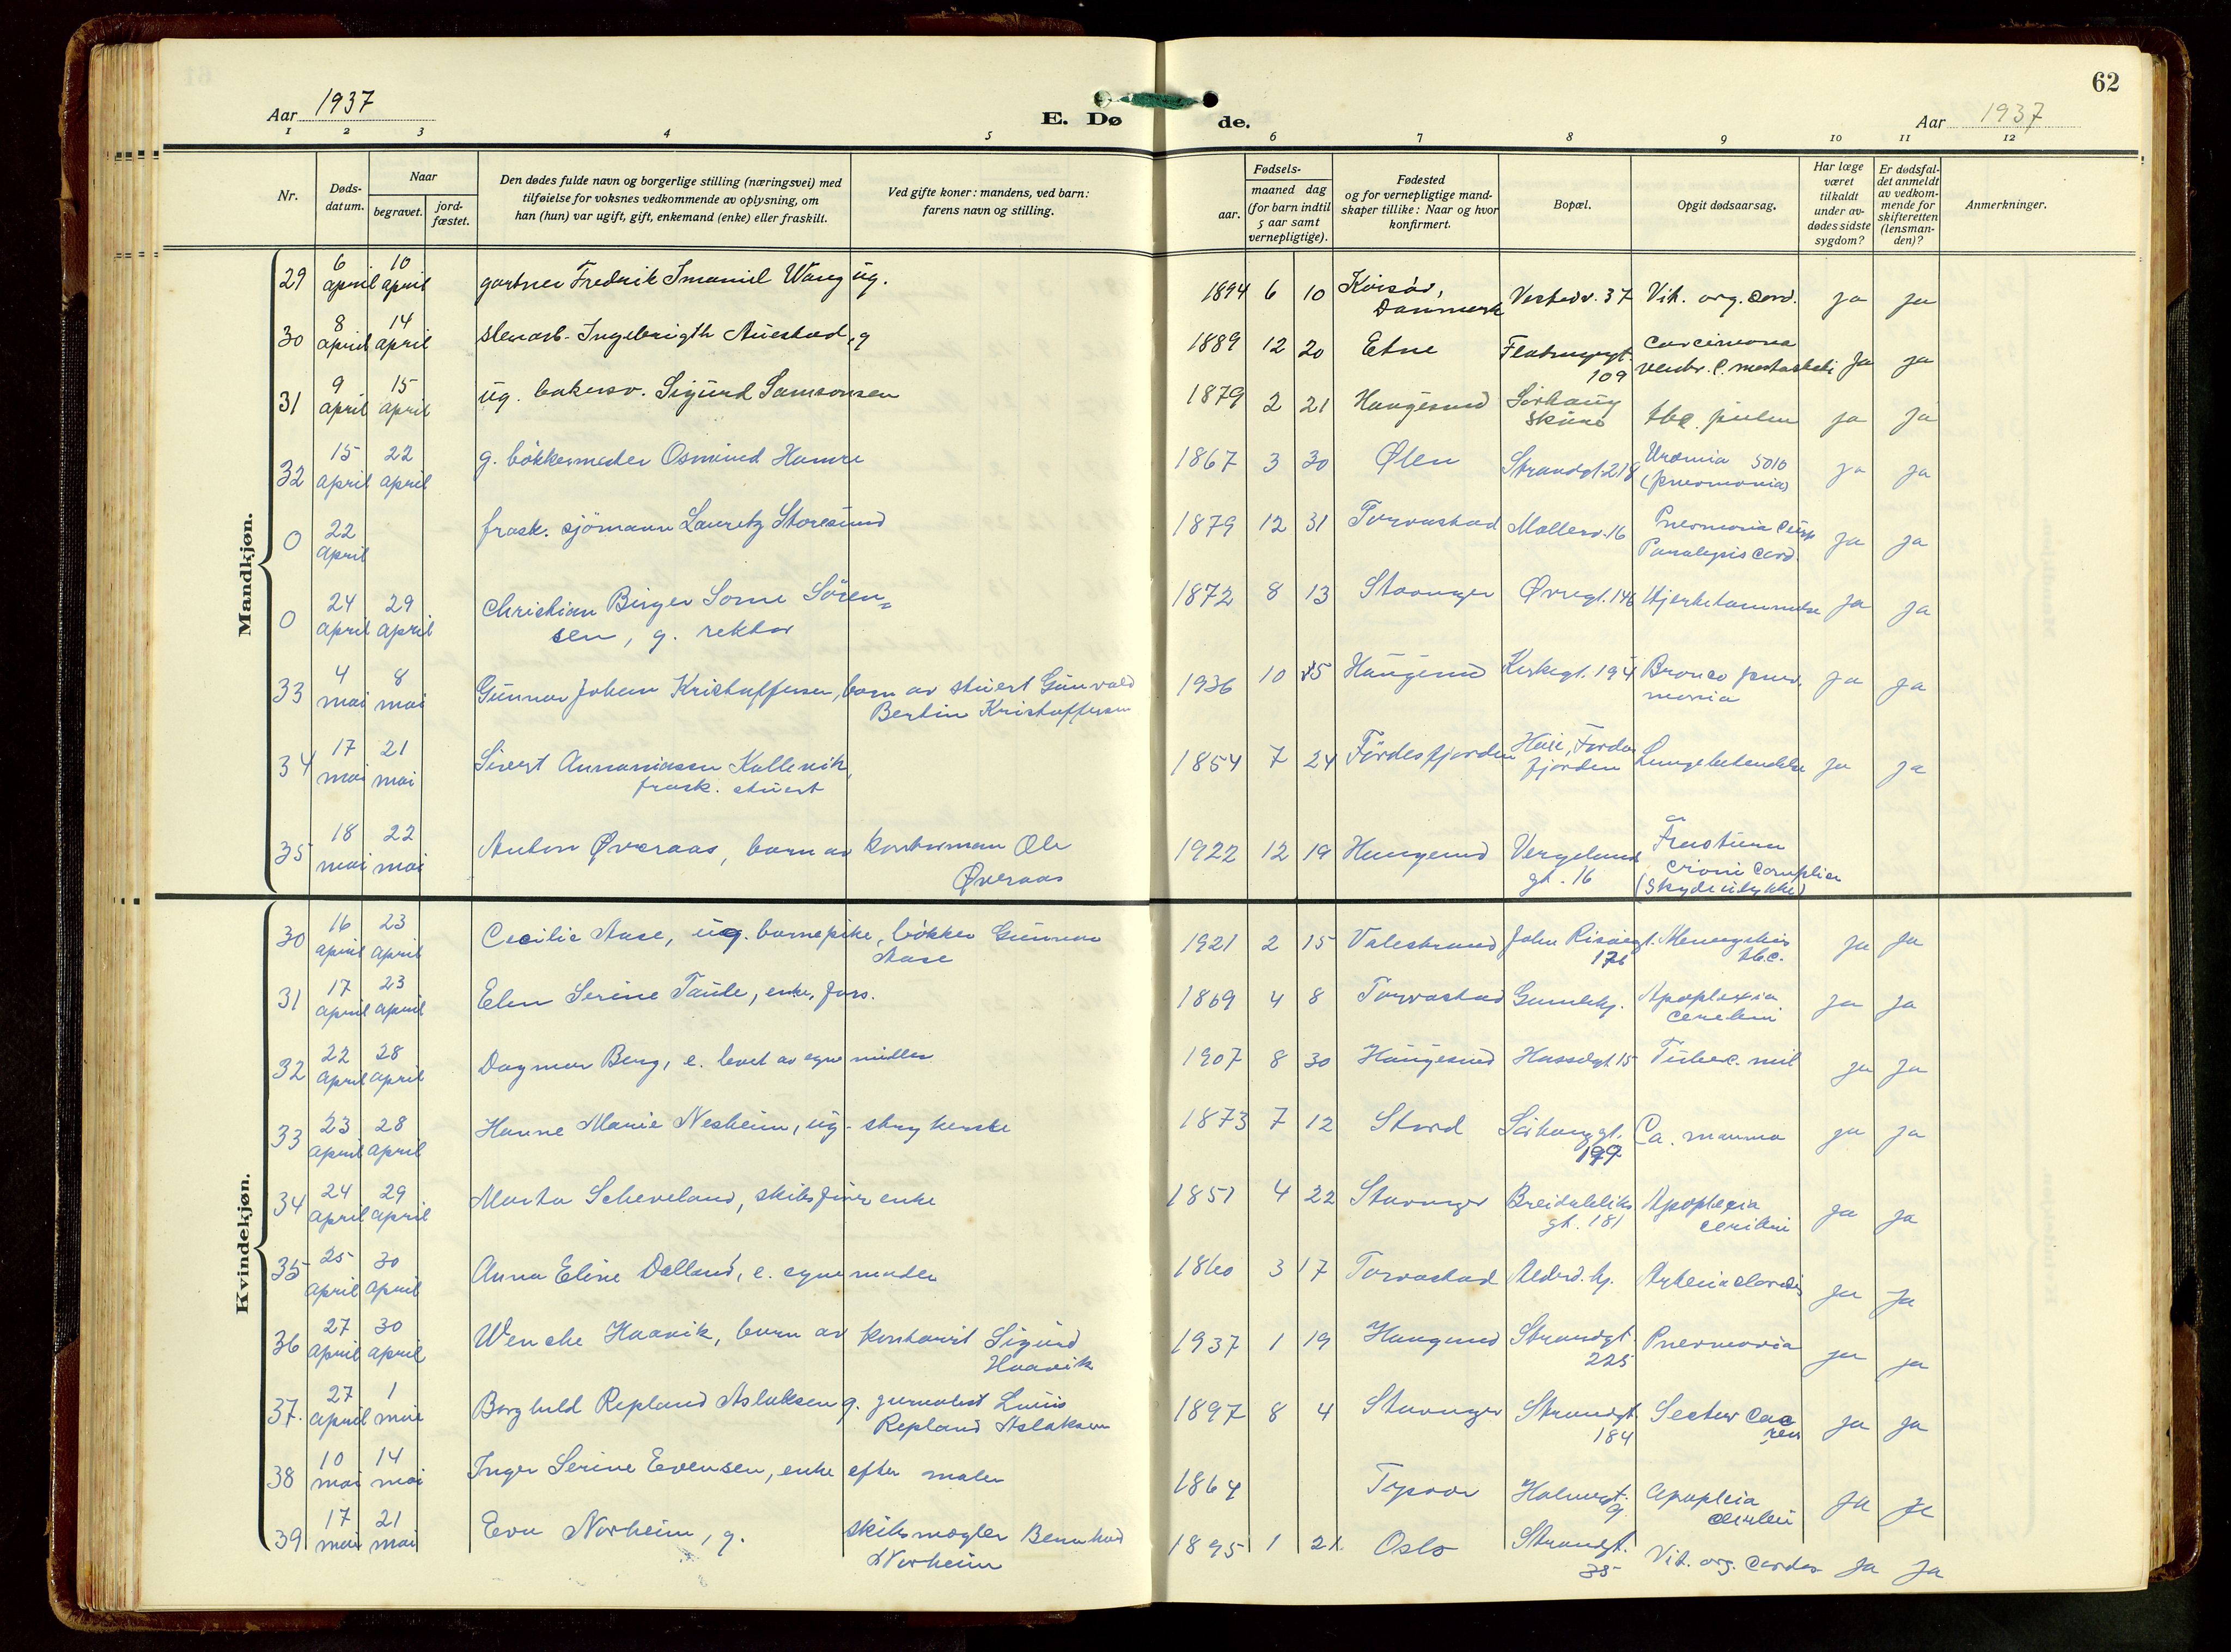 62
Aar 1937
E. Døde.
Aar 1937
1 2 3 4 5 6 7 8 9 10 11 12
Nr.
Døds-datum.
Naar
begravet.
jord-fæstet.
Den dødes fulde navn og borgerlige stilling (næringsvei) med
tilføielse for voksnes vedkommende av oplysning, om
han (hun) var ugift, gift, enkemand (enke) eller fraskilt.
Ved gifte koner: mandens, ved barn:
farens navn og stilling.
Fødsels-
aar.
maaned dag
(for barn indtil
5 aar samt
vernepligtige).
Fødested
og for vernepligtige mand-
skaper tillike: Naar og hvor
konfirmert.
Bopæl.
Opgit dødsaarsag.
Har læge
været
tilkaldt
under av-
dødes sidste
sygdom?
Er dødsfal-
det anmeldt
av vedkom-
mende for
skifteretten
(lensman-
den)?
Anmerkninger.
Mandkjøn.
29 6 april 10 april gartner Fredrik Imanuel Wang ug. 1894 6 10 Korsør, Danmark Vestedv. 37 Vit. org. cord. ja ja
30 8 april 14 april stenarb. Ingebrigth Auestad, g 1889 12 20 Etne 109 Carcinoma ja ja
31 9 april 15 april ug. bakersv. Sigurd Samsonsen 1879 2 21 Haugesund Sørhaug skole tbc. pulm ja ja
32 15 april 22 april g. bökkermester Osmund Hamre 1867 3 30 Ølen Strandgt. 218 Uræmia 5010 (pneomonia) ja ja
0 22 april frask. sjömann Lauritz Storesund 1879 12 31 Torvastad Møllerv. 16 Pneomonia Paralysis cord. ja ja
0 24 april 29 april Christian Birger Lorne Sören=
sen, g. rektor 1872 8 13 Stavanger Øvregt. 146 Hjertelammelse ja ja
33 4 mai 8 mai Gunnar Johan Kristoffersen, barn av stuert Gunvald
Bertin Kristoffersen 1936 10 25 Haugesund Kirkegt. 194 Bronco pneo-monia ja ja
34 17 mai 21 mai Sivert Annaniassen Kallevik,
frask. stuert 1854 7 24 Fördesfjorden Førdesfjorden Lungebetendelse ja ja
35 18 mai 22 mai Anton Øveraas, barn av kontorman Ole
Øveraas 1922 12 19 Haugesund Vergelands gt. 16 Fractura cranii complica (skydeulykke)
Kvindekjøn.
30 16 april 23 april Cecilie Aase, ug. barnepike, bökker Gunnar
Aase 1921 2 15 Valestrand John Risöegt. 176 Meningitis tbc. ja ja
31 17 april 23 april Elen Serine Taule, enke, fors. 1869 4 8 Torvastad Gamlehj. Apoplexia cerebri ja ja
32 22 april 28 april Dagmar Berg, e. levet av egne midler 1907 8 30 Haugesund Hasselgt 15 Tuberc. mil ja ja
33 23 april 28 april Hanne Marie Nesheim, ug. strykerske 1873 7 12 Stord Sörhauggt. 199 Ca. mamma ja ja
34 24 april 29 april Marta Scheveland, skibsförer enke 1851 4 22 Stavanger Breidabliks gt. 181 Apoplexia cerebri ja ja
35 25 april 30 april Anna Eline Dalland, e. egne midler 1860 3 17 Torvastad Alderd. hj. ja ja
36 27 april 30 april Wenche Haavik, barn av kontorist Sigurd
Haavik 1937 1 19 Haugesund Strandgt 225 Pneomonia ja ja
37. 27 april 1 mai Borghild Repland Aslaksen g. jurnalist Louis
Repland Aslaksen 1897 8 4 Stavanger Strandgt 184 ja ja
38 10 mai 14 mai Inger Serine Evensen, enke efter maler 1864 Tysvær 9 Apoplexia cerebri ja ja
39 17 mai 21 mai Eva Norheim, g. skibsmægler Bernhard
Norheim 1895 1 21 Oslo Strandgt. 35 Vit. org. cordis ja ja